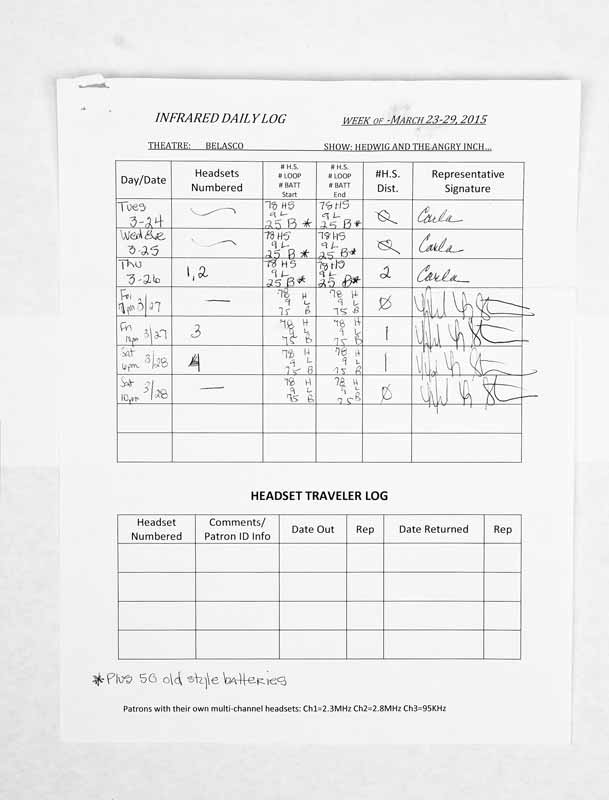 INFRARED DAILY LOG WEEK OF -MARCH 23-29, 2015
THEATRE: BELASCO SHOW: HEDWIG AND THE ANGRY INCH...
Day/Date Headsets Numbered # H.S. # LOOP # BATT Start # H.S. # LOOP # BATT End #H.S. Dist. Representative Signature
Tues 3-24 78 HS 9 L 25 B * 78 HS 9 L 25 B * 0 Carla
Wed Eve 3-25 78 HS 9 L 25 B * 78 HS 9 L 25 B * 0 Carla
Thu 3-26 1,2 78 HS 9 L 25 B * 78 HS 9 L 25 B * 2 Carla
Fri 3/27 — 78 H 9 L 75 B 78 H 9 L 75 B 0
Fri 3/27 3 78 H 9 L 75 B 78 H 9 L 75 B 1
Sat 6pm 3/28 4 78 H 9 L 75 B 78 H 9 L 75 B 1
Sat 10pm 3/28 — 78 H 9 L 75 B 78 H 9 L 75 B 0
HEADSET TRAVELER LOG
Headset Numbered Comments/ Patron ID Info Date Out Rep Date Returned Rep
*Plus 50 old style batteries
Patrons with their own multi-channel headsets: Ch1=2.3MHz Ch2=2.8MHz Ch3=95KHz